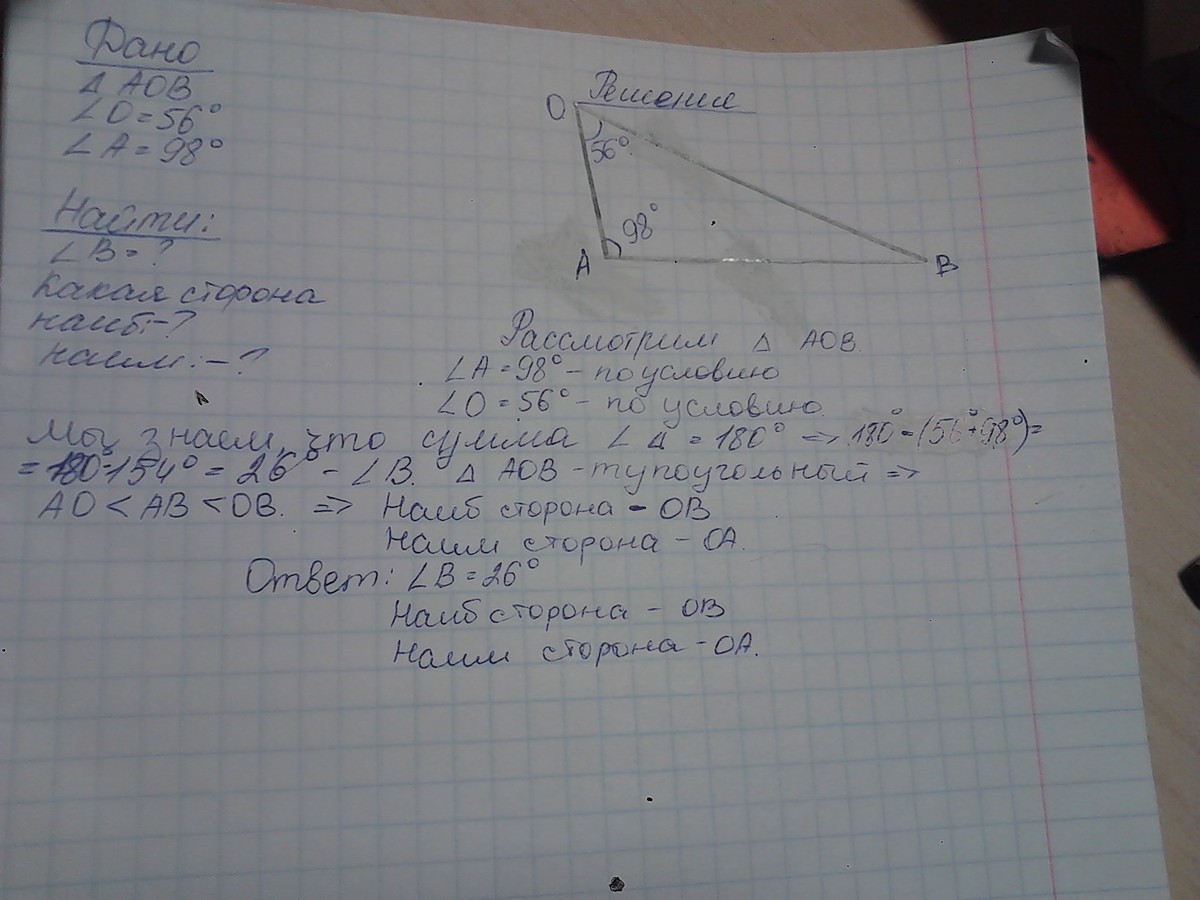 Дано
Δ AOB
∠O = 56°
∠A = 98°
Найти:
∠B = ?
Какая сторона
наиб: – ?
наим: – ?
Решение
O
56°
98°
A
B
Рассмотрим Δ AOB.
∠A = 98° – по условию
∠O = 56° – по условию.
Мы знаем, что сумма ∠ Δ = 180° => 180° - (56°+98°) =
= 180 - 154° = 26° - ∠B. Δ AOB - тупоугольный =>
AO < AB < OB. => Наиб сторона - OB
Наим сторона - OA.
Ответ: ∠B = 26°
Наиб сторона - OB
Наим сторона - OA.